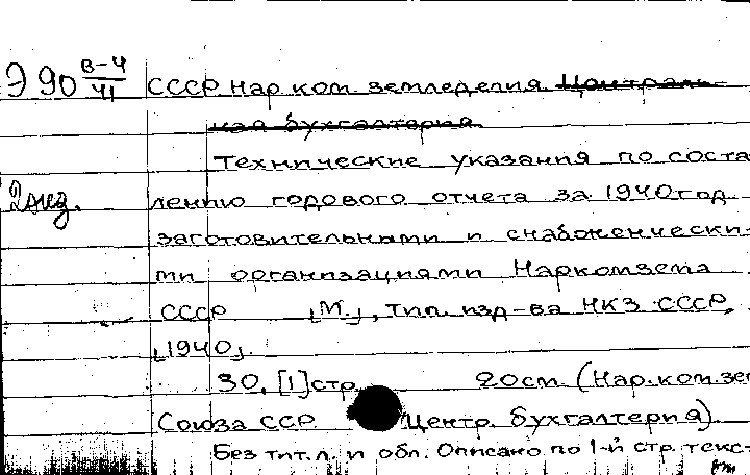 Э 90 В-4/41 СССР Нар. ком. земледелия. Централь-
ная бухгалтерия.
Технические указания по соста
2 экз. лению годового отчета за 1940 год
заготовительными и снабженчески-
ми организациями Наркомзема
СССР [М.], Тип. изд-ва НКЗ СССР,
[1940].
30, [1] стр. 20 см. (Нар. ком. зе
Союза ССР Центр. бухгалтерия).
Без тит. л. и обл. Описано по 1-й стр. текс-